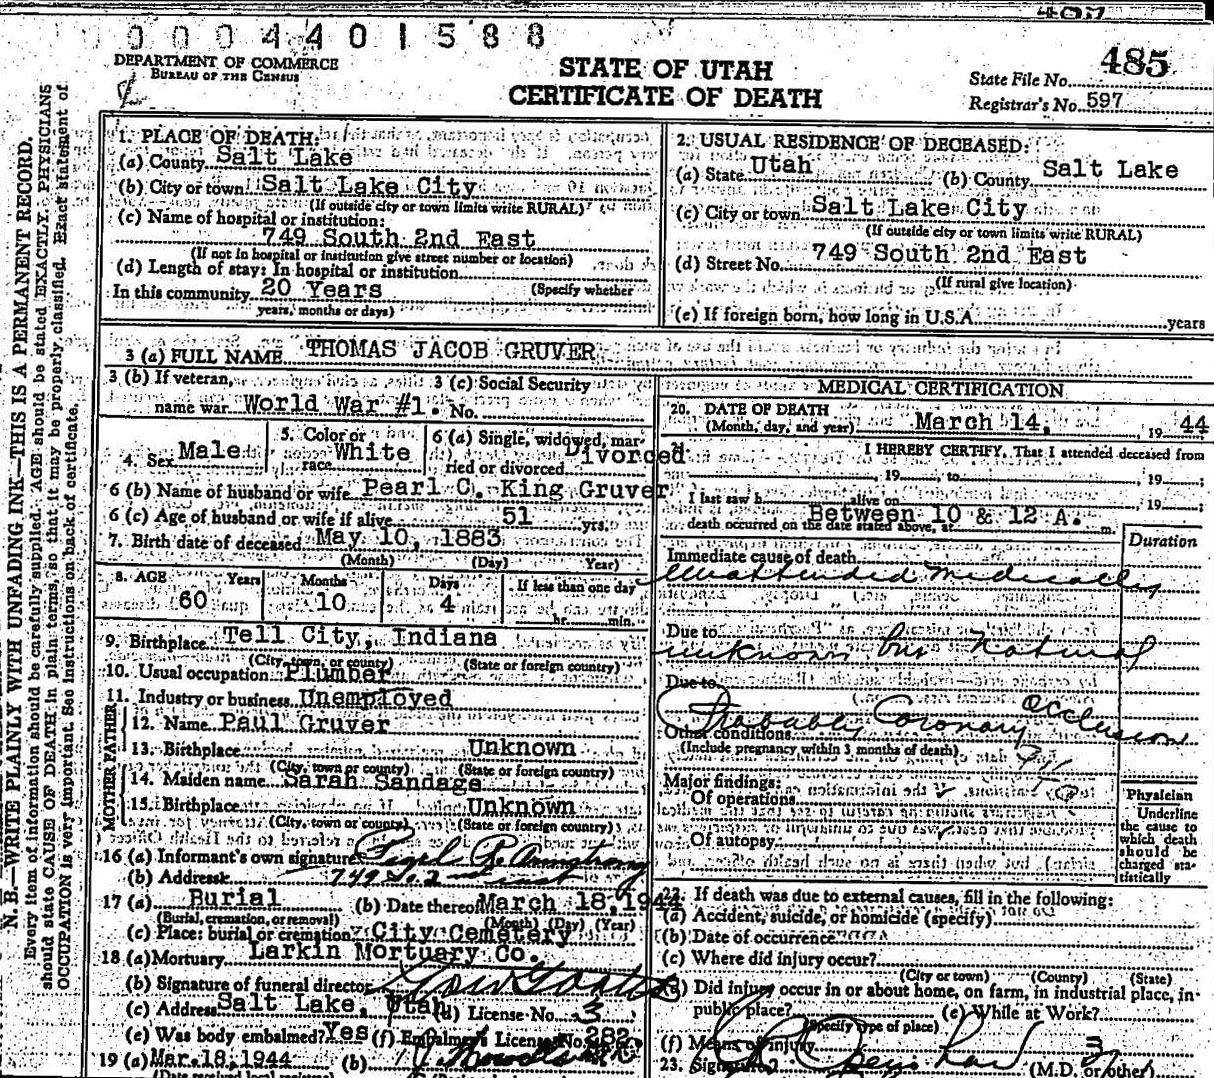 0004401588
DEPARTMENT OF COMMERCE
BUREAU OF THE CENSUS
STATE OF UTAH
CERTIFICATE OF DEATH
State File No. 485
Registrar's No. 597
N. B.—WRITE PLAINLY WITH UNFADING INK—THIS IS A PERMANENT RECORD.
Every item of information should be carefully supplied. AGE should be stated EXACTLY. PHYSICIANS
should state CAUSE OF DEATH in plain terms, so that it may be properly classified. Exact statement of
OCCUPATION is very important. See instructions on back of certificate.
1. PLACE OF DEATH:
(a) County Salt Lake
(b) City or town Salt Lake City
(If outside city or town limits write RURAL)
(c) Name of hospital or institution:
749 South 2nd East
(If not in hospital or institution give street number or location)
(d) Length of stay: In hospital or institution
In this community 20 Years (Specify whether
years, months or days)
2. USUAL RESIDENCE OF DECEASED:
(a) State Utah (b) County Salt Lake
(c) City or town Salt Lake City
(If outside city or town limits write RURAL)
(d) Street No. 749 South 2nd East
(If rural give location)
(e) If foreign born, how long in U.S.A. years
3 (a) FULL NAME THOMAS JACOB GRUVER
3 (b) If veteran, 3 (c) Social Security
name war World War #1. No.
4. Sex Male 5. Color or race White 6 (a) Single, widowed, married or divorced Divorced
6 (b) Name of husband or wife Pearl C. King Gruver
6 (c) Age of husband or wife if alive 51 yrs.
7. Birth date of deceased May 10, 1883
(Month) (Day) Year)
8. AGE Years Months Days If less than one day
60 10 4 hr. min.
9. Birthplace Tell City, Indiana
(City, town, or county) (State or foreign country)
10. Usual occupation Plumber
11. Industry or business Unemployed
FATHER
12. Name Paul Gruver
13. Birthplace Unknown
(City, town or county) (State or foreign country)
MOTHER
14. Maiden name Sarah Sandage
15. Birthplace Unknown
(City, town or county) (State or foreign country)
16 (a) Informant's own signature R. Armstrong
(b) Address 749 So. 2 East
17 (a) Burial (b) Date thereof March 18, 1944
(Burial, cremation, or removal) (Month) (Day) (Year)
(c) Place: burial or cremation City Cemetery
18 (a) Mortuary Larkin Mortuary Co.
(b) Signature of funeral director
(c) Address Salt Lake, Utah (d) License No. 3
(e) Was body embalmed? Yes (f) Embalmer's License No. 282
19 (a) Mar.18,1944 (b)
(Date received local
MEDICAL CERTIFICATION
20. DATE OF DEATH
(Month, day, and year) March 14, 19 44
I HEREBY CERTIFY, That I attended deceased from
, 19 , to , 19 ;
I last saw h alive on , 19 ;
death occurred on the date stated above, at Between 10 & 12 A. m.
Duration
Immediate cause of death
Unattended Medically
Due to
unknown but Natural
Due to
Probably Coronary occlusion
Other conditions
(Include pregnancy within 3 months of death)
Major findings:
Of operations
Of autopsy
Physician
Underline
the cause to
which death
should be
charged sta-
tistically
22. If death was due to external causes, fill in the following:
(a) Accident, suicide, or homicide (specify)
(b) Date of occurrence
(c) Where did injury occur?
(City or town) (County) (State)
(d) Did injury occur in or about home, on farm, in industrial place, in
public place? (e) While at Work?
(Specify type of place)
(f) Means of injury
23. Signature (M.D. or other)